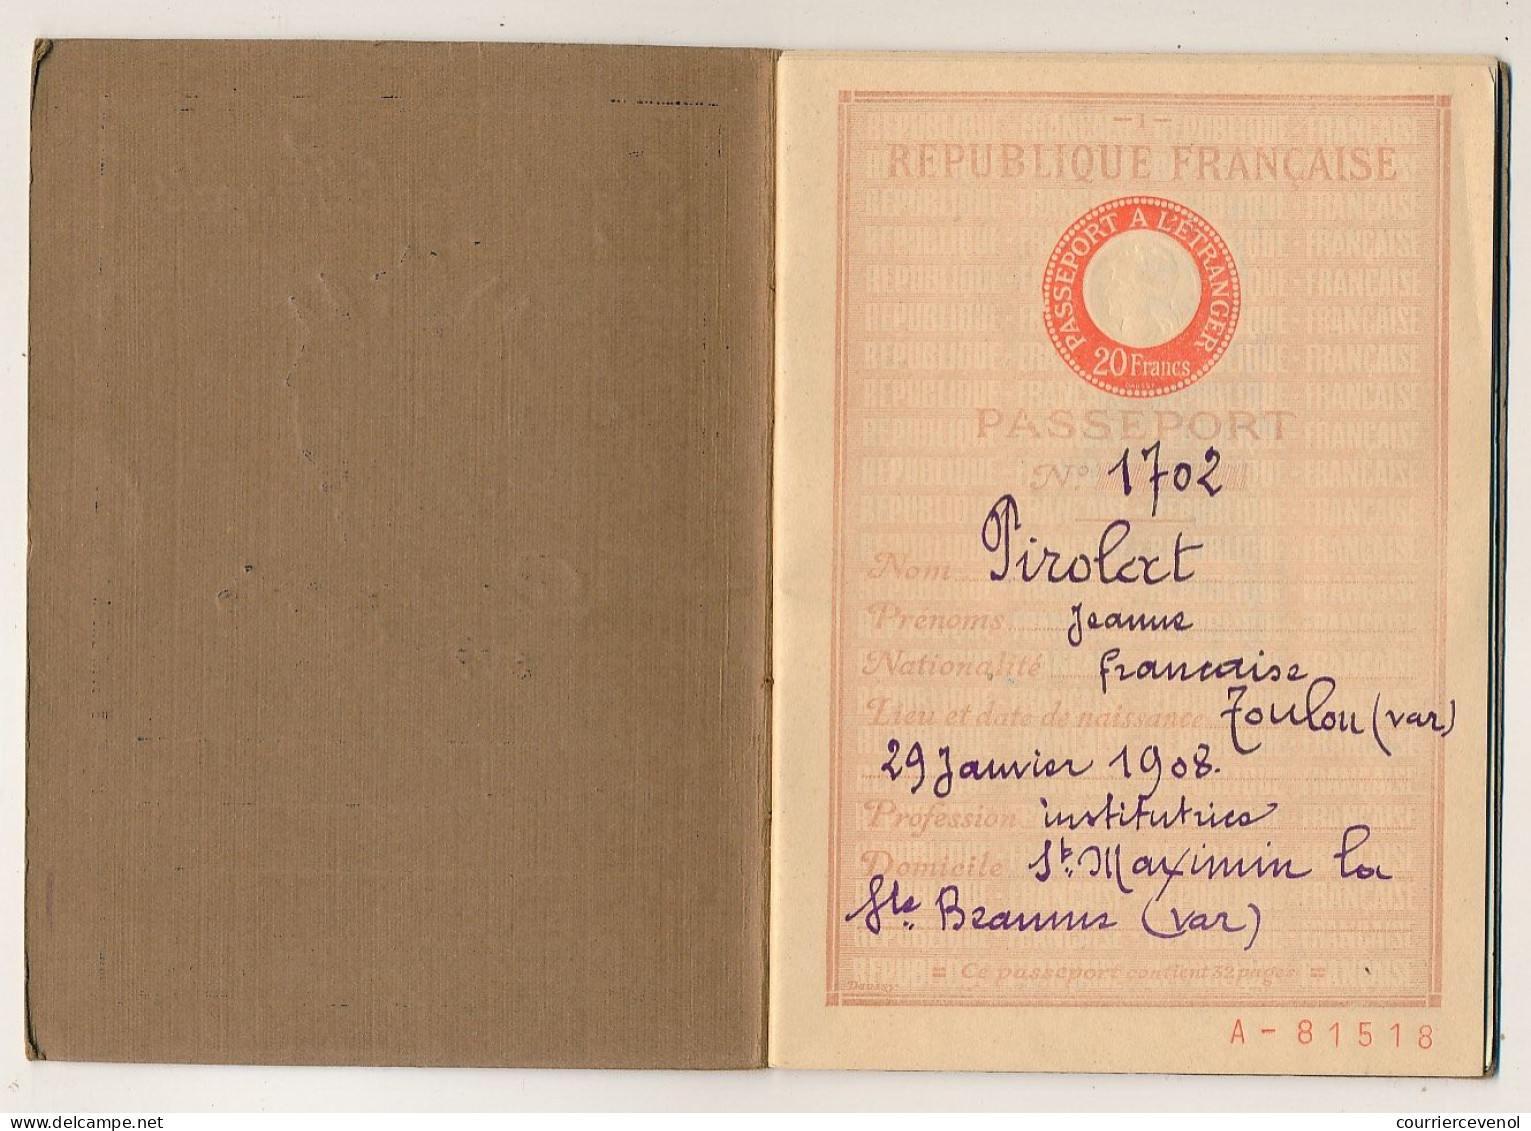 - 1 -
REPUBLIQUE FRANÇAISE
PASSEPORT A L'ÉTRANGER
20 Francs
DAUSSY
PASSEPORT
N° 1702
Nom Pirolat
Prénoms Jeanne
Nationalité francaise
Lieu et date de naissance Toulon (var)
29 Janvier 1908.
Profession institutrice
Domicile St. Maximin la
Ste. Beaume (var)
= Ce passeport contient 32 pages =
Daussy
A - 81518
courriercevenol.com